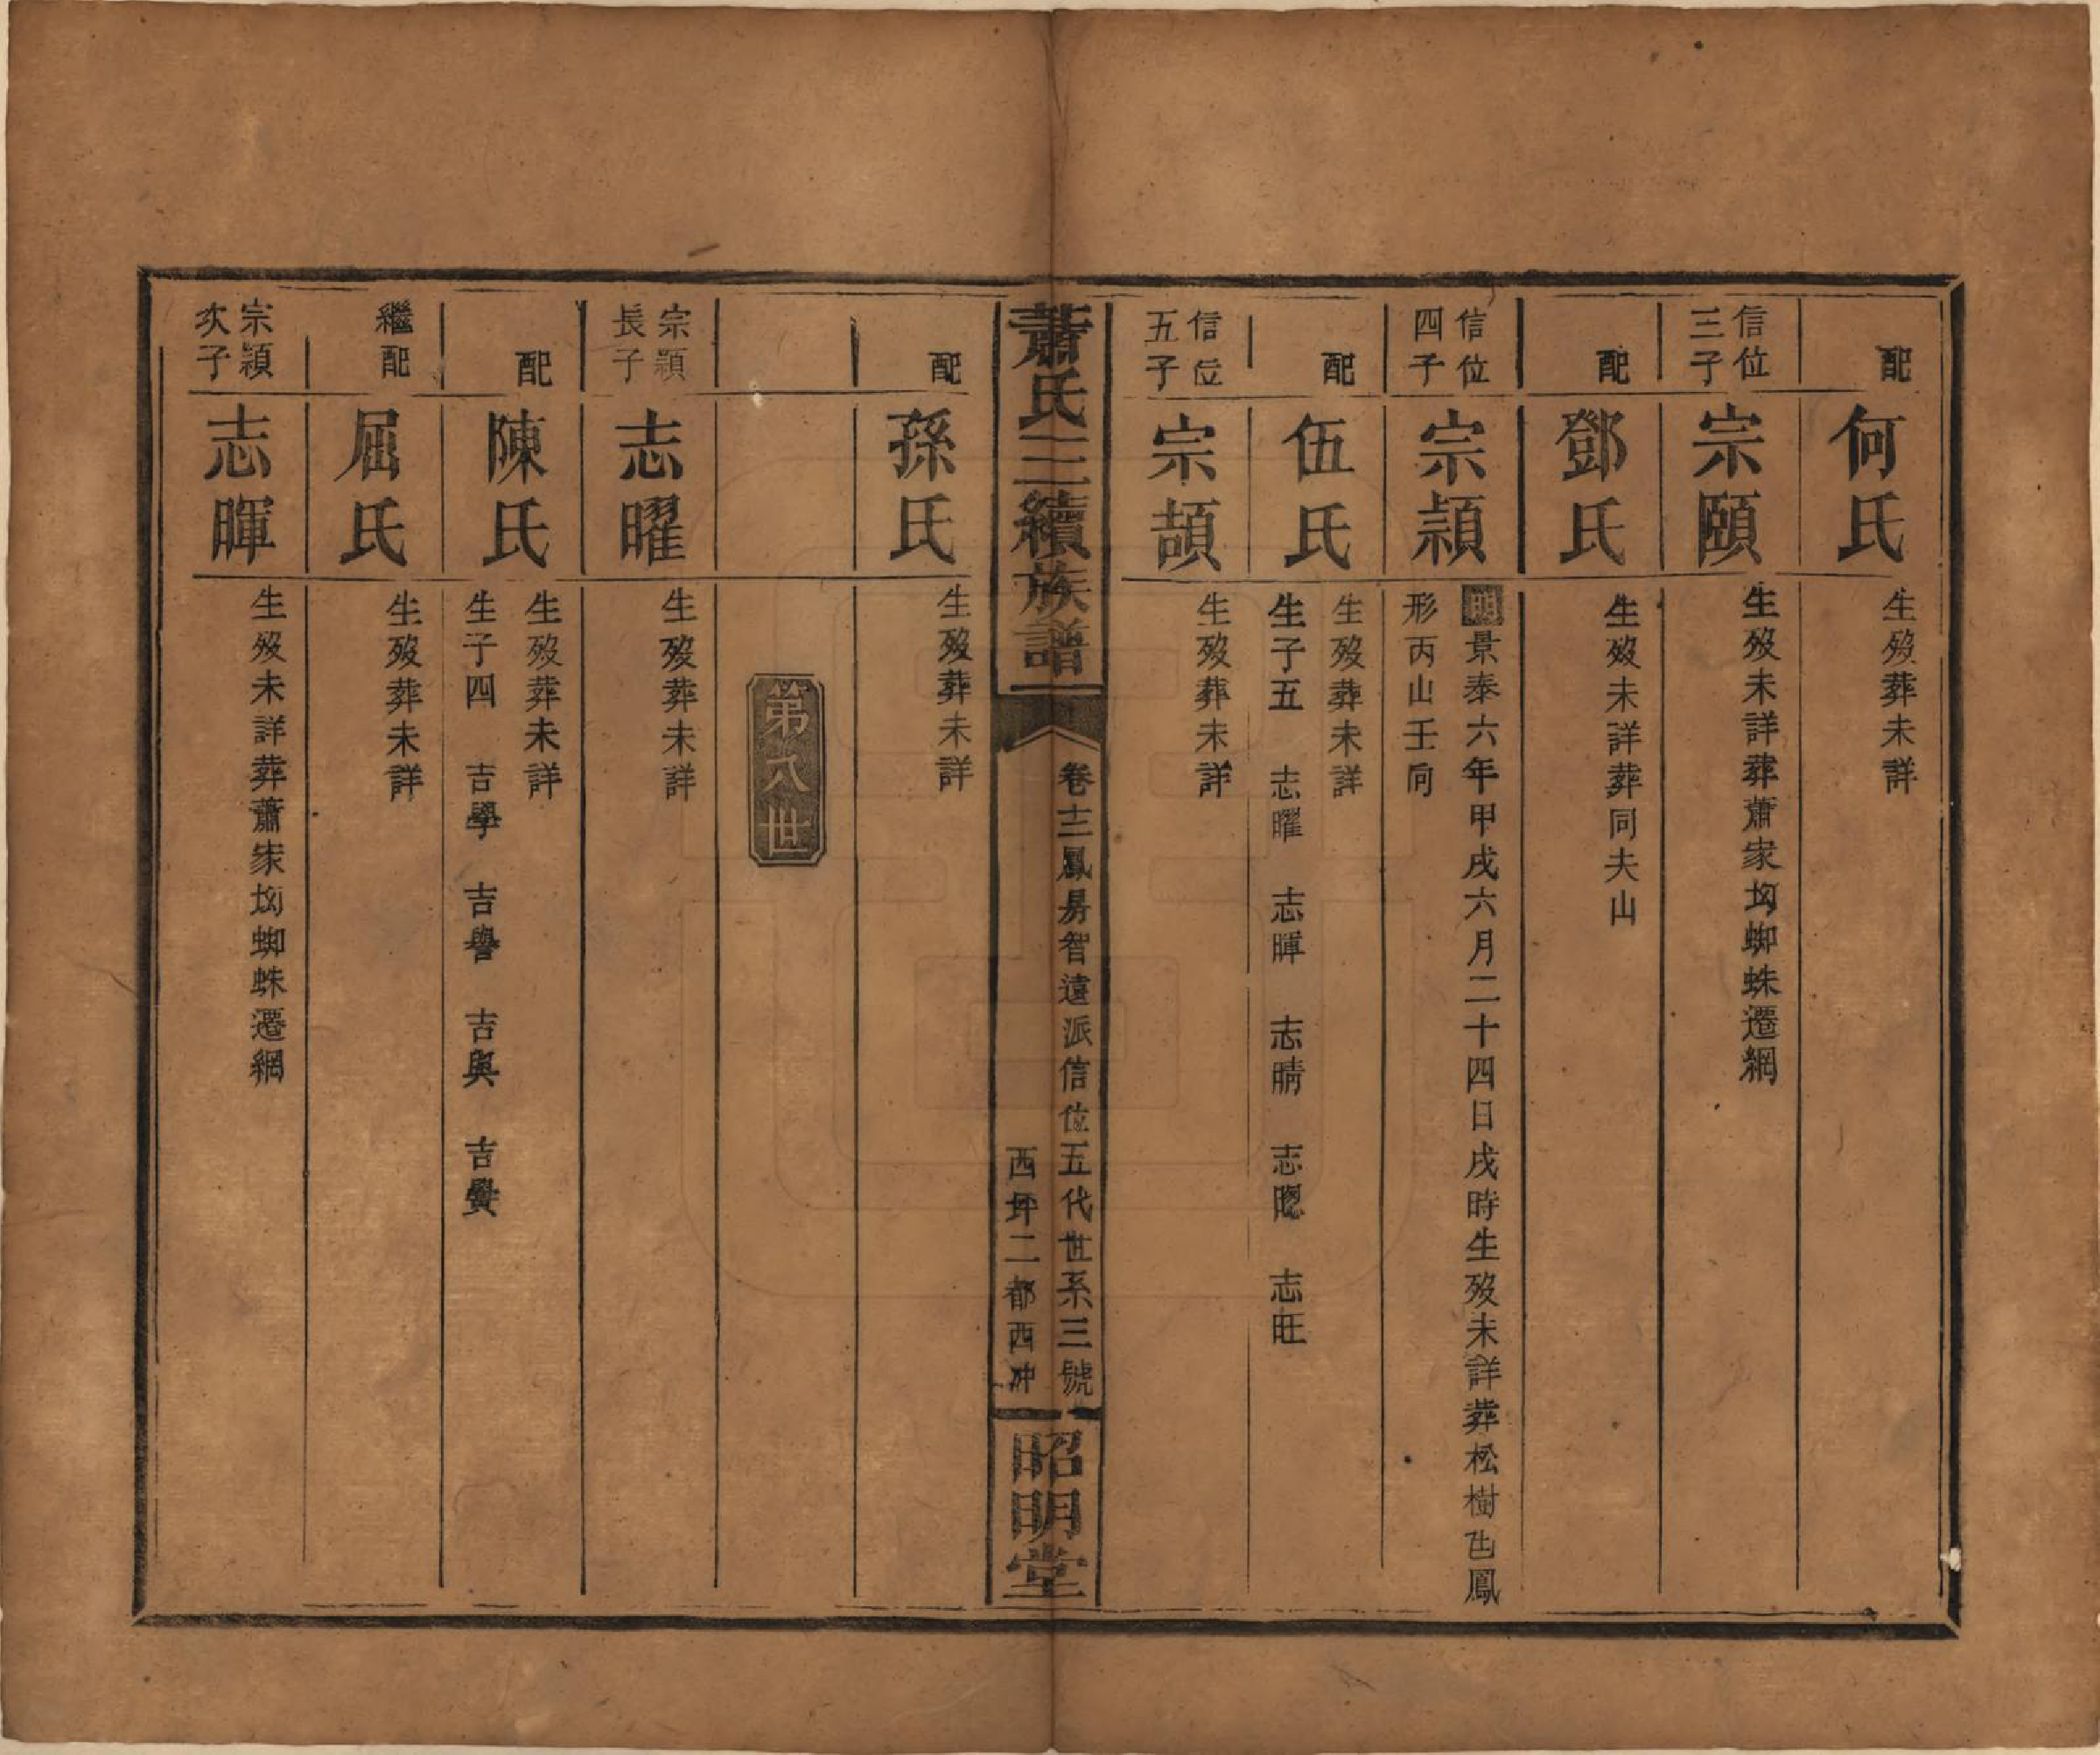 配 何氏 生歿葬未詳
信位三子 宗頤 生歿未詳葬蕭家坳蜘蛛遷網
配 鄧氏 生歿未詳葬同夫山
信位四子 宗穎 明景泰六年甲戌六月二十四日戌時生歿未詳葬松樹凸鳳
形丙山壬向
配 伍氏 生歿葬未詳
生子五 志曜 志暉 志晴 志聰 志旺
信位五子 宗頡 生歿葬未詳
蕭氏三續族譜 卷十二鳳房智遠派信位五代世系三號
西坪二都西冲
昭明堂
配 孫氏 生歿葬未詳
第八世
宗穎長子 志曜 生歿葬未詳
配 陳氏 生歿葬未詳
生子四 吉學 吉譽 吉與 吉爨
繼配 屈氏 生歿葬未詳
宗穎次子 志暉 生歿未詳葬蕭家坳蜘蛛遷網